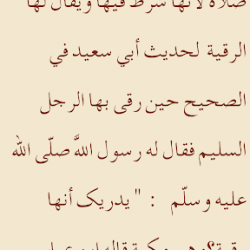 صلاة لأنها شرط فيها ويقال لها
الرقية لحديث أبي سعيد في
الصحيح حين رقى بها الرجل
السليم فقال له رسول اللَّه صلّى الله
عليه وسلّم : " يدريك أنها